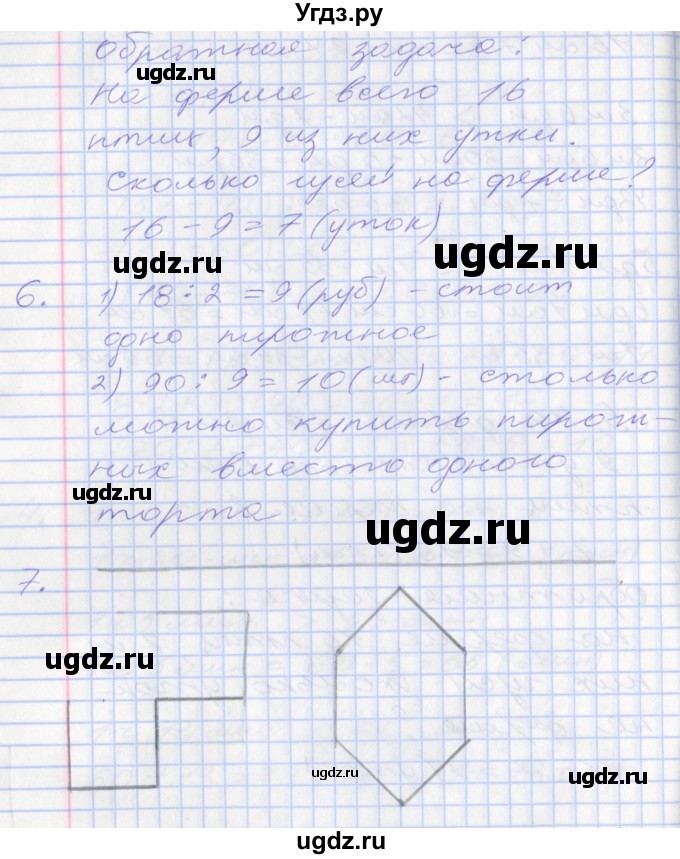 Угдз.ру
Обратная задача:
ugdz.ru
На ферме всего 16
птиц, 9 из них утки.
Сколько гусей на ферме?
16 - 9 = 7 (уток)
ugdz.ru ugdz.ru
6. 1) 18 : 2 = 9 (руб) - стоит
одно пирожное
ugdz.ru ugdz.ru
2) 90 : 9 = 10 (шт) - столько
можно купить пирож-
ных вместо одного
ugdz.ru
торта.
ugdz.ru
7.
ugdz.ru
ugdz.ru ugdz.ru
ugdz.ru